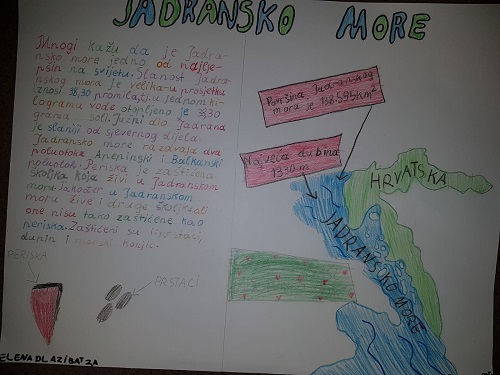 JADRANSKO MORE
Mnogi kažu da je Jadra-
nsko more jedno od najlje-
pših na svijetu. Slanost Jadra-
nskog mora je velika-u prosjeku
iznosi 38,30 promila, tj. u jednom ki-
logramu vode otopljeno je 38,30
grama soli. Južni dio Jadrana
je slaniji od sjevernog dijela.
Jadransko more razdvaja dva
poluotoka Apeninski i Balkanski
poluotok. Periska je zaštićena
školjka koja živi u Jadranskom
moru. Također u Jadranskom
moru žive i druge školjke ali
one nisu tako zaštićene kao
periska. Zaštićeni su i prstaci,
dupin i morski konjic.
PERISKA
PRSTACI
Površina Jadranskog
mora je 138.595km²
Najveća dubina
1330 m
HRVATSKA
JADRANSKO MORE